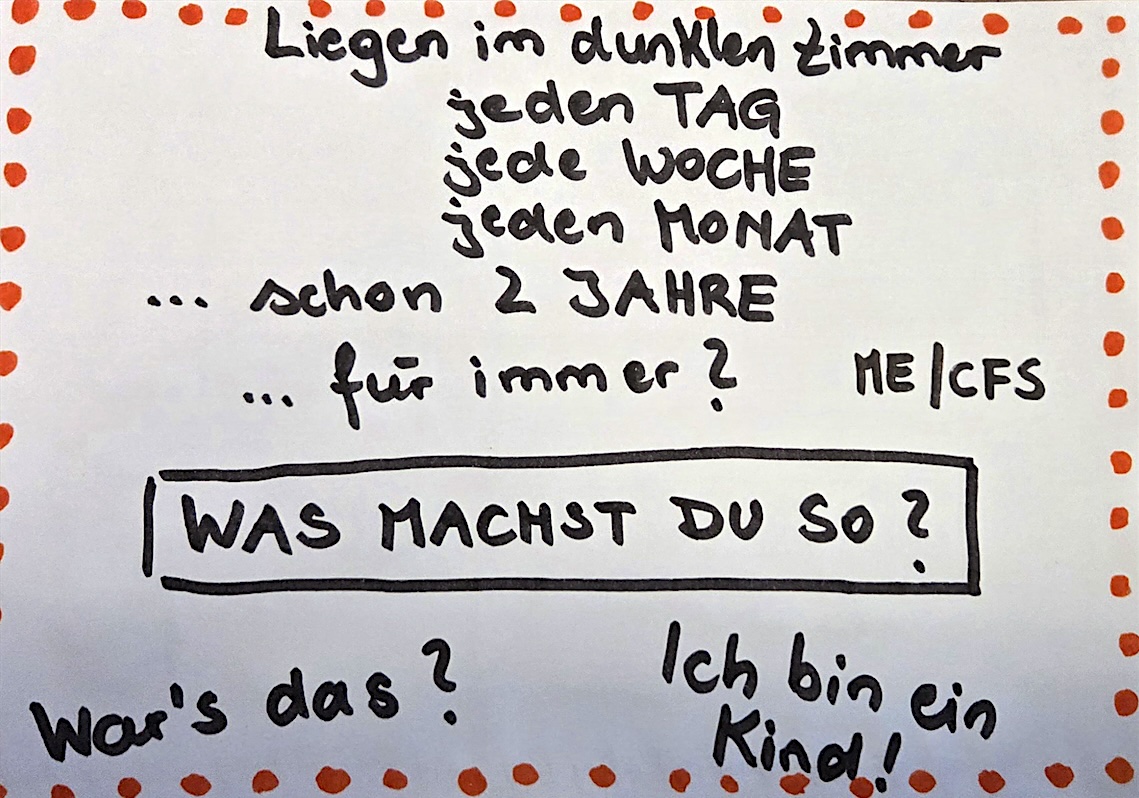 Liegen im dunklen Zimmer
jeden TAG
jede WOCHE
jeden MONAT
... schon 2 JAHRE
... für immer?
ME/CFS
WAS MACHST DU SO?
War's das?
Ich bin ein
Kind!